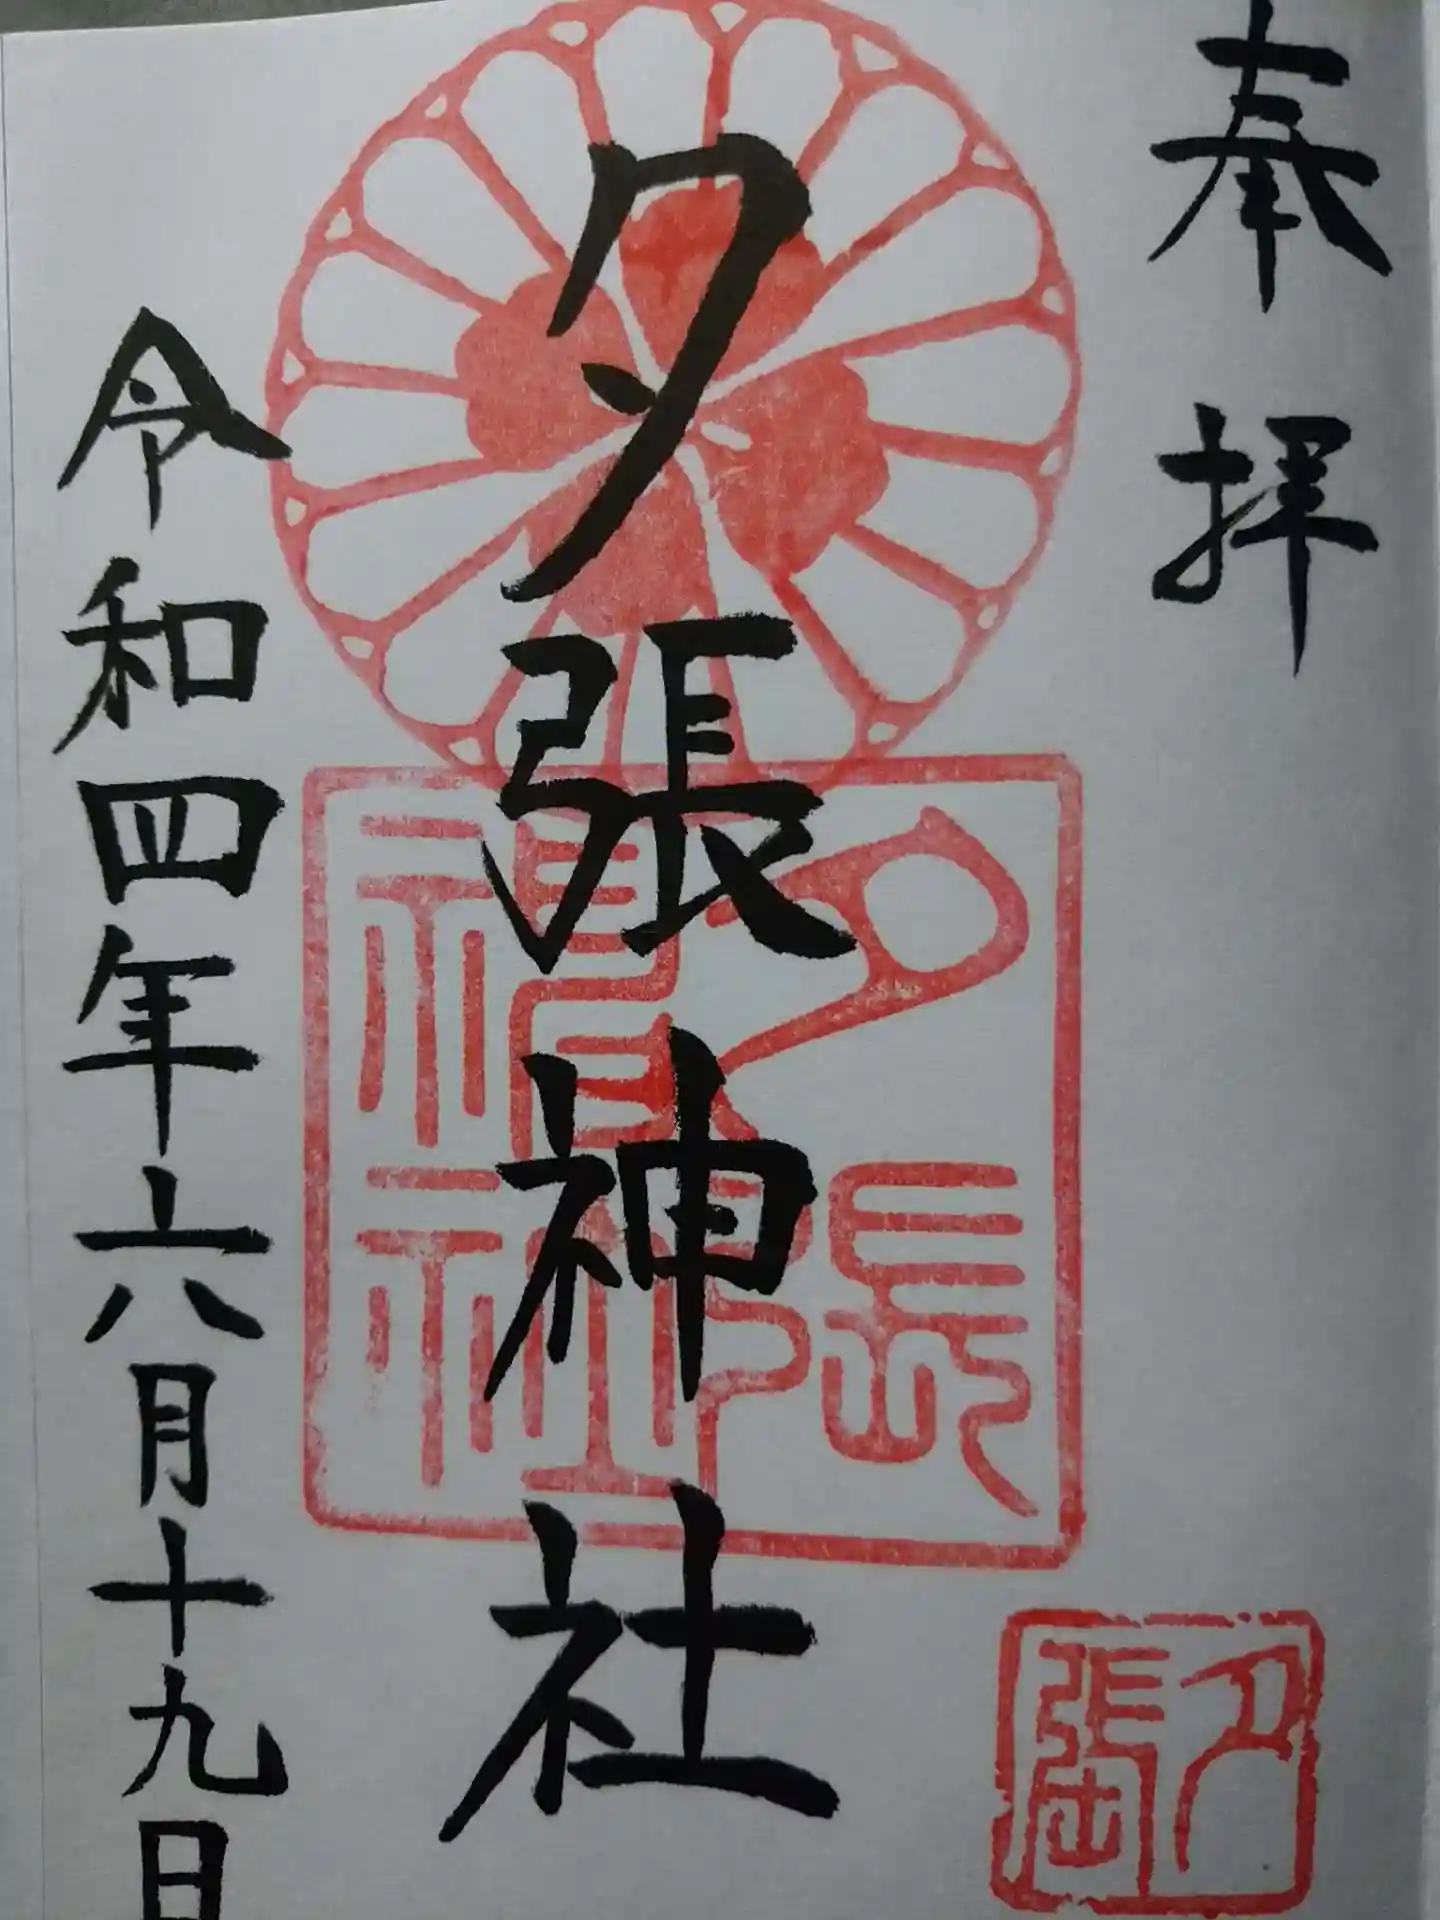 奉拝
夕張神社
令和四年六月十九日
夕張
神社
夕張